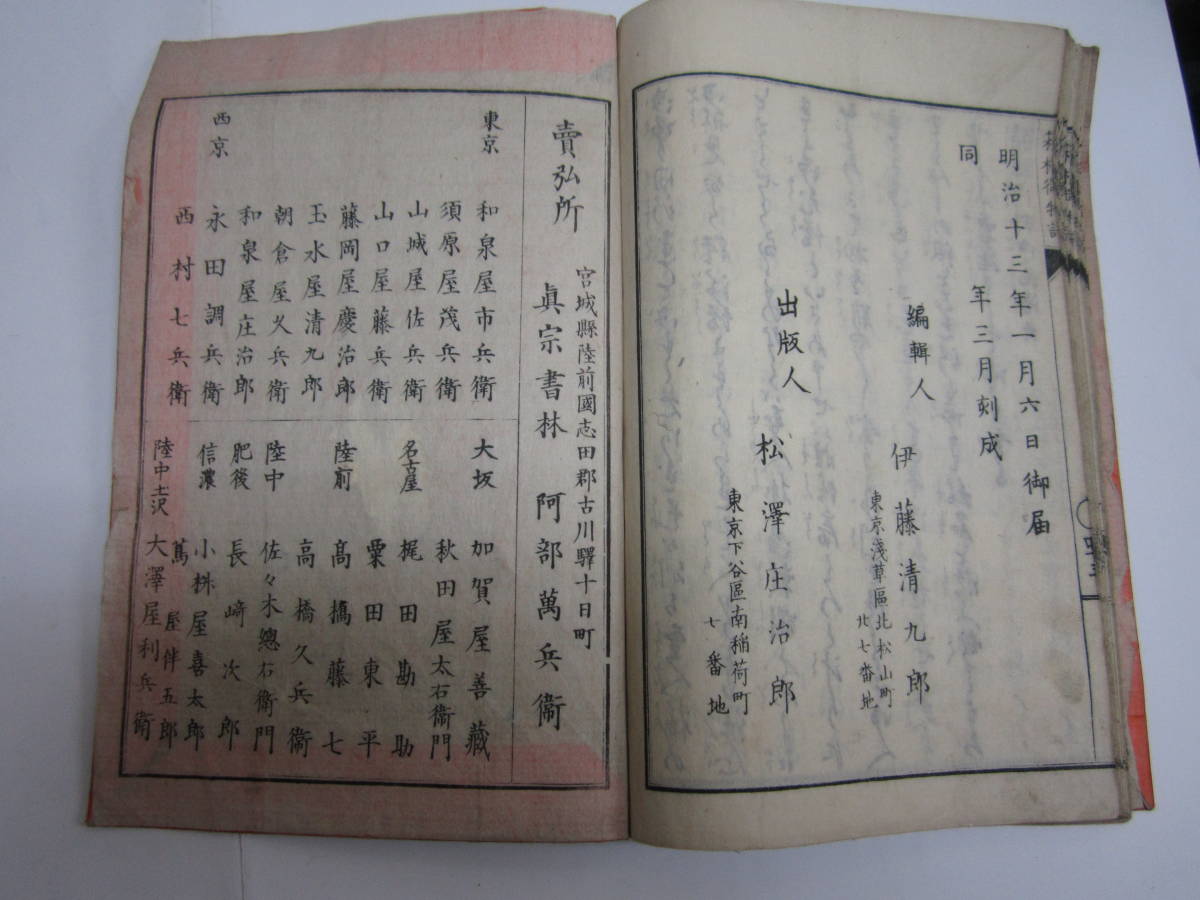 明治十三年一月六日御届
同 年三月刻成
編輯人 伊藤清九郎
東京淺草區北松山町
北七番地
出版人 松澤庄治郎
東京下谷區南稲荷町
七番地
宮城縣陸前國志田郡古川驛十日町
賣弘所 眞宗書林 阿部萬兵衞
東京 和泉屋市兵衛
須原屋茂兵衛
山城屋佐兵衛
山口屋藤兵衛
藤岡屋慶治郎
玉水屋清九郎
朝倉屋久兵衛
和泉屋庄治郎
西京 永田調兵衛
西村七兵衛
大坂 加賀屋善藏
秋田屋太右衞門
名古屋 梶田勘助
栗田東平
陸前 高橋藤七
高橋久兵衞
陸中 佐々木總右衞門
肥後 長﨑次郎
信濃 小桝屋喜太郎
蔦屋伴五郎
陸中 大澤屋利兵衛